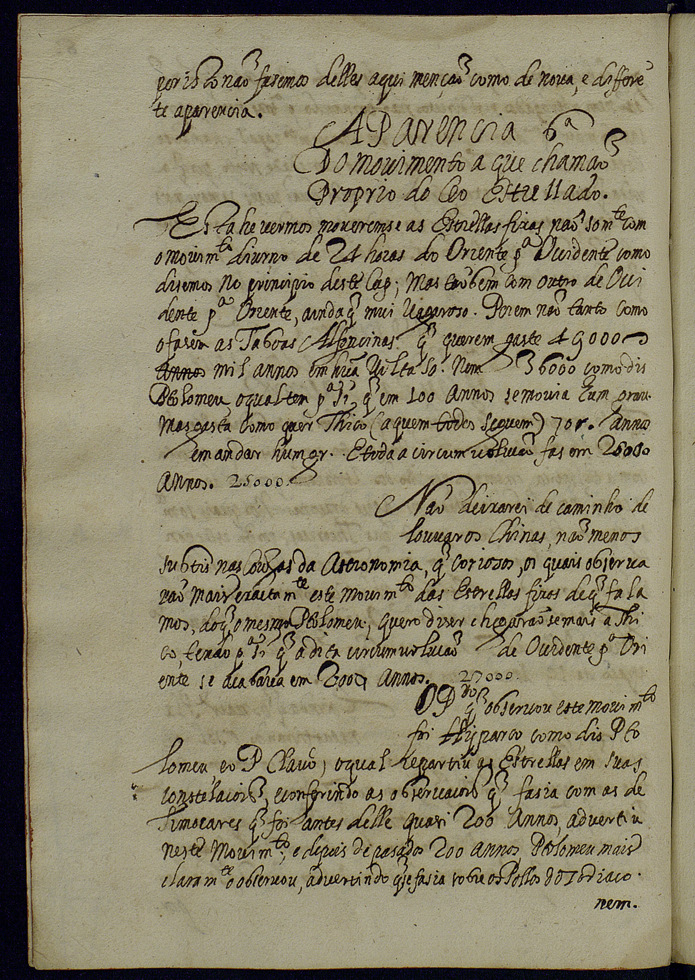 por isto não faremos delles aqui menção como de noua, e differẽ
te aparencia.
Aparencia 6ª
Do mouimento a que chamaõ
Proprio do Ceo Estrellado.
Esta he vermos moueremse as Estrellas fixas naõ somte com
o mouimto diurno de 24 horas do Oriente pª Occidente como
disemos no principio deste Cap; Mas taõbem com outro de Occi
dente pª Oriente, aindaq mui Vagaroso. Porem naõ tanto como
o fasem as Taboas Alfoncinas q querem gaste 49000
Annos mil annos em hũa Volta so. Nem 36000 como dis
Ptolomeu o qual tem pª si q em 100 Annos se mouia hum grau.
Mas gasta como quer Thico (a quem todos seguem) 70 annos
em andar hum gr. E toda a circumuoluçaõ fas em 25000
Annos. 25000.
Naõ deixarei de caminho de
louuar os Chinas, naõ menos
subtis nas Couzas da Astronomia, q coriosos, os quais obserua
raõ mais exactamte este Mouimto das Estrellas fixas de q fala
mos, do q o mesmo Ptolomeu; quero diser chegaraõse mais a Thi
co, tendo pª si q a dita circumuoluçaõ de Occidente pª Ori
ente se acabaua em Annos. 27000.
O Pro q obseruou este mouimto
foi Hyparco como dis Pto
lomeu e o P Clauio; o qual repartiu as Estrellas em suas
constelacois, e conferindo as obseruacois q fasia com as de
Timocares q foi antes delle quasi 200 Annos, aduertiu
neste Mouimto; e depois de pasados 200 annos, Ptolomeu mais
claramte o obseruou, aduertindo q se fasia sobre os Pollos do Zodiaco.
nem.